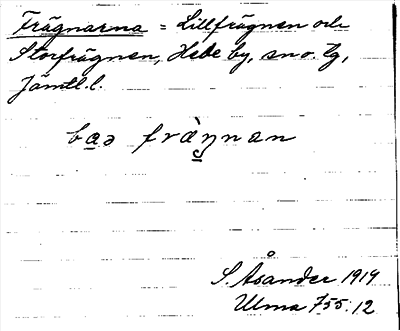 Frägnarna = Lillfrägnen och
Storfrägnen, Hebe by, sn o. lg,
Jämtl. l.
baə fræ̀ŋnan
S. Åsander 1919
Ulma 755:12